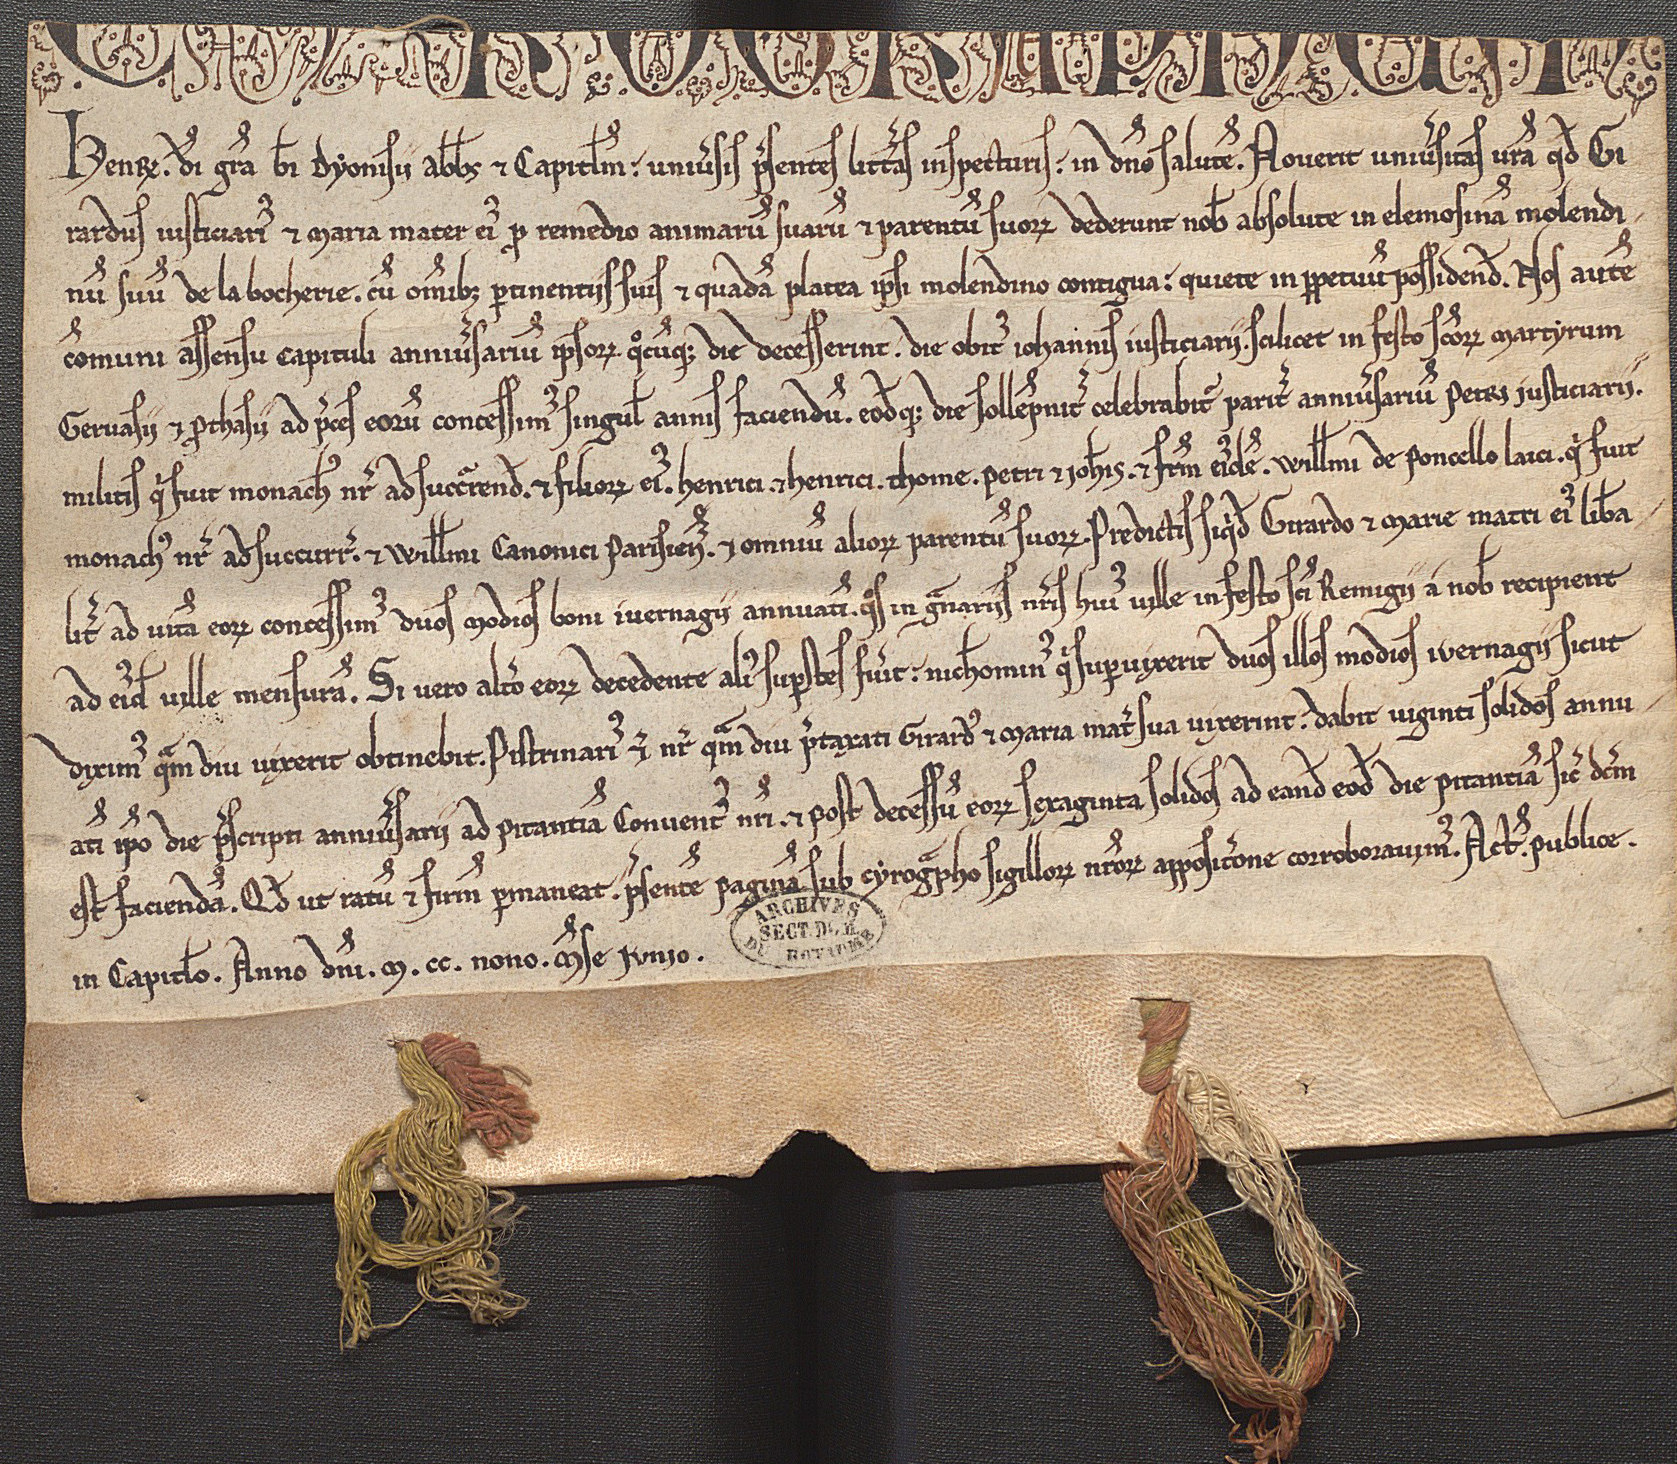 Henꝝ. d̄i gr̄a b̄i Dyonisii abb̄s ⁊ Capitl̄m: uniu̅sis p̄sentes litt̄as inspecturis: in dn̄o salutē. Nouerit uniu̅sitas ur̄a qd̄ Gi
rardus iusticiariꝰ ⁊ Maria mater eiꝰ ꝓ remedio animarū suarū ⁊ parentū suoꝝ dederunt nob̄ absolute in elemosinā molendi
nū suū de la bocherie. cū om̄ibꝫ ꝑtinentiis suis ⁊ quadā platea ip̄si molendino contigua: quiete in ꝑpetuū possidend̄. Nos autē
cōmuni assensu capituli anniu̅sariū ipsoꝝ qͦcūqꝫ die decesserint. die obitꝰ iohannis iusticiarii. scilicet in festo sc̄oꝝ martyrum
Geruasii ⁊ ꝓthasii ad p̄ces eorū concessimꝰ singul̄ annis faciendū. eod̄qꝫ die sollēpnit̄ celebrabit̄ parit̄ anniu̅sariū petri iusticiarii.
militis qͥ fuit monachꝰ nr̄ ad succ̄rend̄. ⁊ filioꝝ eiꝰ. henrici. ⁊ henrici. thome. petri ⁊ joh̄is. ⁊ fr̄m eiꝰdē. Will̄mi de poncello laici. qͥ fuit
monachꝰ nr̄ ad succurr̄. ⁊ Will̄mi Canonici parisien̄. ⁊ omniū alioꝝ parentū suoꝝ. Predictis siqͥd̄ Girardo ⁊ Marie matri eiꝰ lib̄a
lit̄ ad uitā eoꝝ concessimꝰ duos modios boni ivernagii annuatī. qͦs in gͣnariis nr̄is huiꝰ uille in festo sc̄i Remigii a nob̄ recipient
ad eiꝰd̄ uille mensurā. Si vero alt̄o eoꝝ decedente aliꝰ suꝑstes fu̅it: nich̄ominꝰ qͥ suꝑuixerit duos illos modios ivernagii sicut
diximꝰ qͣm diu uixerit obtinebit. Pistrinariꝰ nr̄ qͣm diu p̄taxati Girardꝰ ⁊ Maria mat̄ sua uixerint: dabit uiginti solidos annu
atī ip̄o die p̄scripti anniu̅sarii ad pitantiā Conuentꝰ nr̄i. ⁊ post decessū eoꝝ sexaginta solidos ad eand̄ eod̄ die pitantiā sic̄ dc̄m
est faciendā. Qd̄ ut ratū ⁊ firm̄ ꝑmaneat. p̄sentē paginā sub cyrogͣpho sigilloꝝ nr̄oꝝ appositōne corroborauimꝰ. Act̄. publice.
in Capitl̄o. Anno dn̄i. M. CC. nono. m̄se Iunio.
ARCHIVES
SECT. D. H.
DU ROYAUME